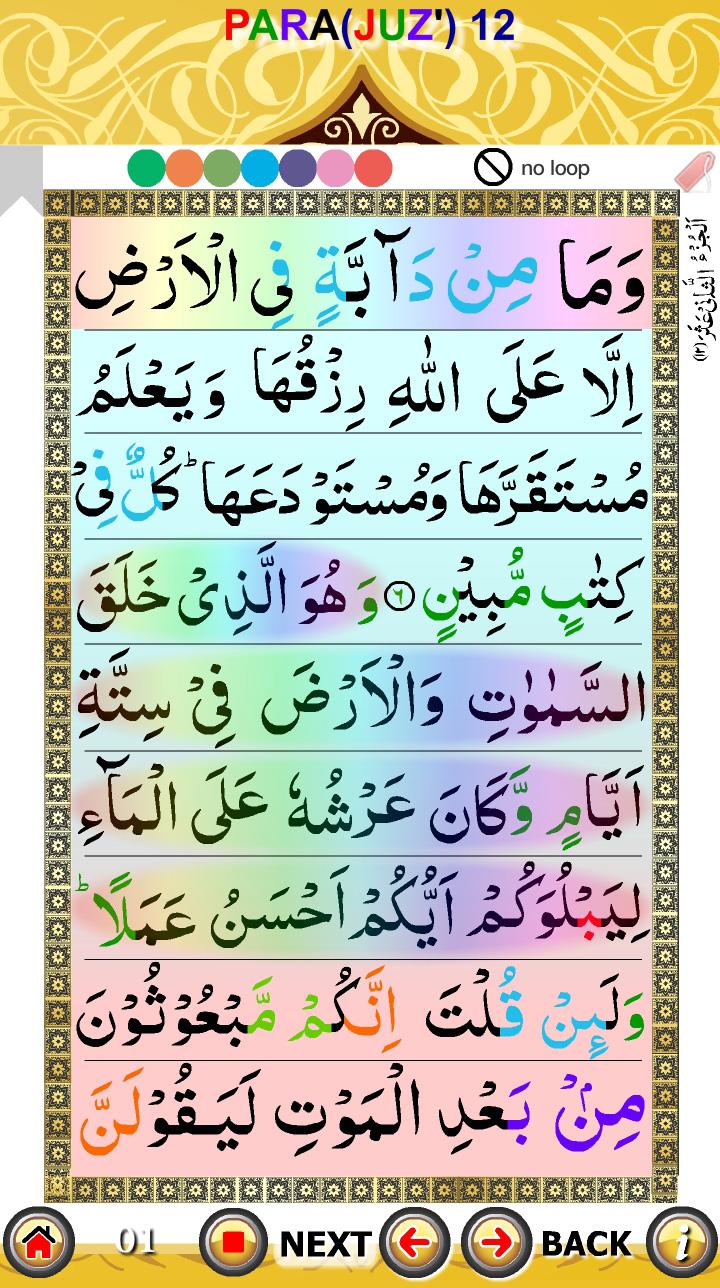 PARA(JUZ') 12
no loop
اَلْجُزْءُ الثَّانِیْ عَشَرَ (۱۲)
وَمَا مِنْ دَآبَّةٍ فِی الْاَرْضِ
اِلَّا عَلَی اللّٰهِ رِزْقُهَا وَیَعْلَمُ
مُسْتَقَرَّهَا وَمُسْتَوْدَعَهَا ؕ كُلٌّ فِیْ
كِتٰبٍ مُّبِیْنٍ ۶ وَهُوَ الَّذِیْ خَلَقَ
السَّمٰوٰتِ وَالْاَرْضَ فِیْ سِتَّةِ
اَیَّامٍ وَّكَانَ عَرْشُهٗ عَلَی الْمَآءِ
لِیَبْلُوَكُمْ اَیُّكُمْ اَحْسَنُ عَمَلًا ؕ
وَلَىِٕنْ قُلْتَ اِنَّكُمْ مَّبْعُوْثُوْنَ
مِنْۢ بَعْدِ الْمَوْتِ لَیَقُوْلَنَّ
01 NEXT BACK i